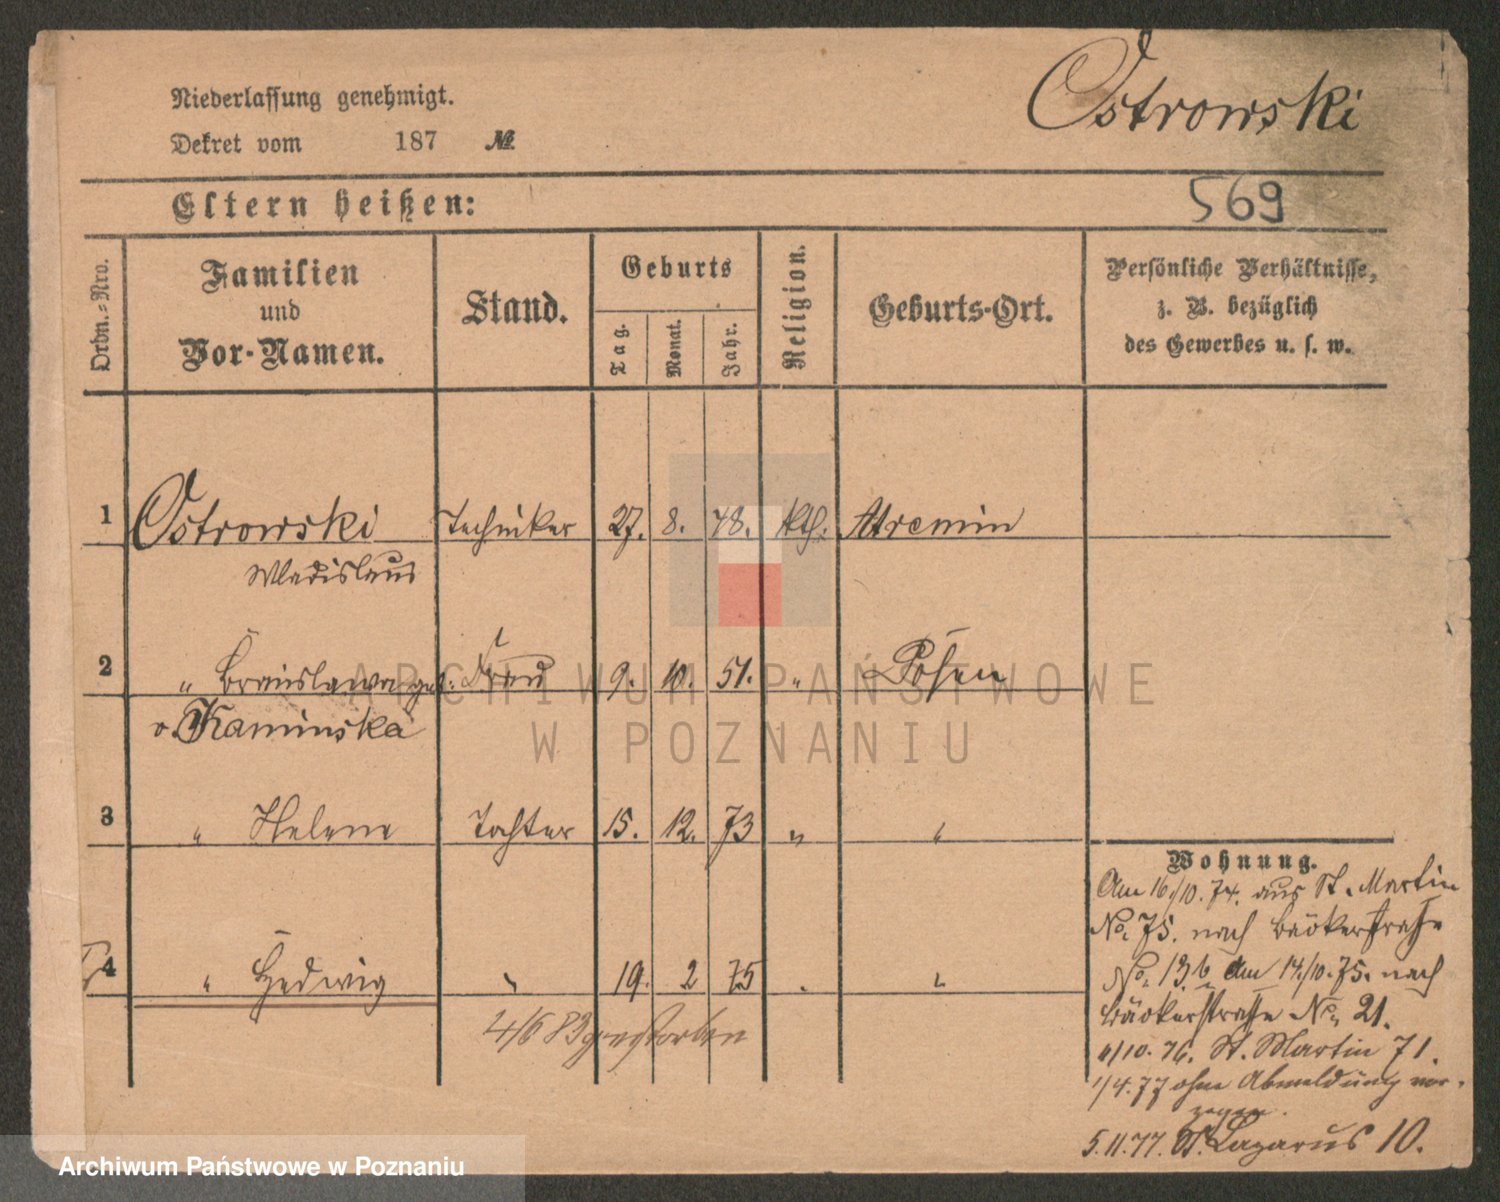 Ostrowski
Niederlassung genehmigt.
Dekret vom 187 №
569
Eltern heißen:
Ordn.-Nro.
Familien
und
Vor-Namen.
Stand.
Geburts
Tag.
Monat.
Jahr.
Religion.
Geburts-Ort.
Persönliche Verhältnisse,
z. B. bezüglich
des Gewerbes u. s. w.
1 Ostrowski Techniker 27. 8. 48. kth. Atremin
Wladislaus
2 " Bronislawa geb. Frau 9. 10. 51. " Posen
v. Kaminska
3 " Helene Tochter 15. 12. 73 " "
4 " Hedwig " 19. 2 75 " "
4/6 83 gestorben
Wohnung.
Am 16/10. 74. aus St. Martin
No. 75. nach Bäckerstraße
No. 13b Am 14/10. 75. nach
Bäckerstraße No. 21.
/10. 76. St. Martin 71.
1/4. 77 ohne Abmeldung ver-
zogen.
5.11.77. St. Lazarus 10.
ARCHIWUM PAŃSTWOWE
W POZNANIU
Archiwum Państwowe w Poznaniu